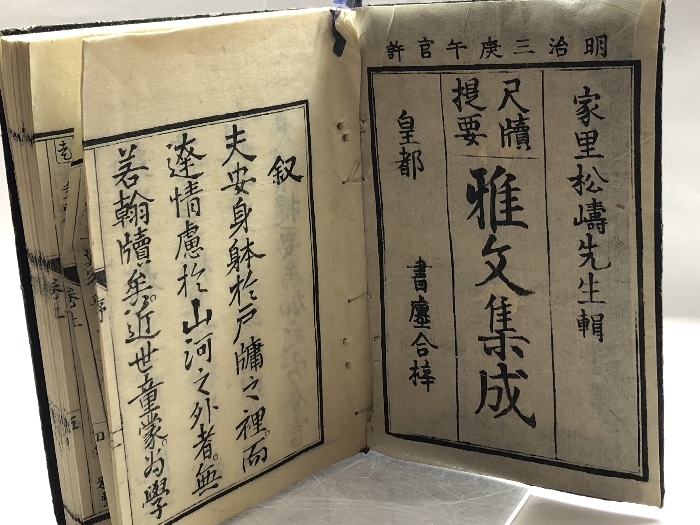 明治三庚午官許
家里松嶹先生輯
尺牘
提要
雅文集成
皇都
書廛合梓
叙
夫安身躰於戸牖之裡。而
達情慮於山河之外者。無
若翰牘牟。近世童蒙。為學